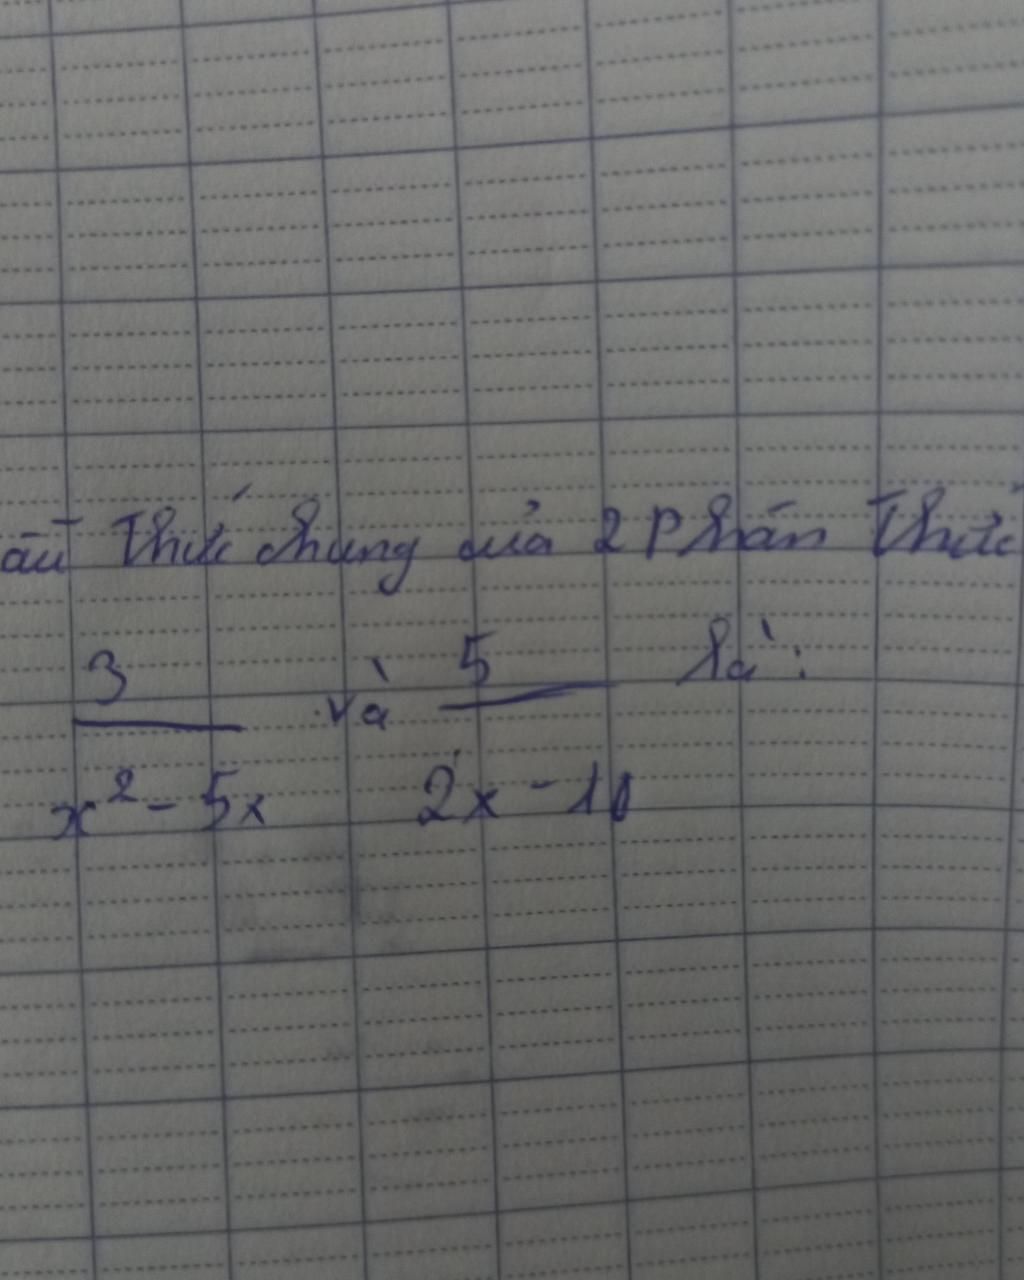 ẫu thức chung của 2 phân thức
3 và 5 là:
x² - 5x 2x - 10